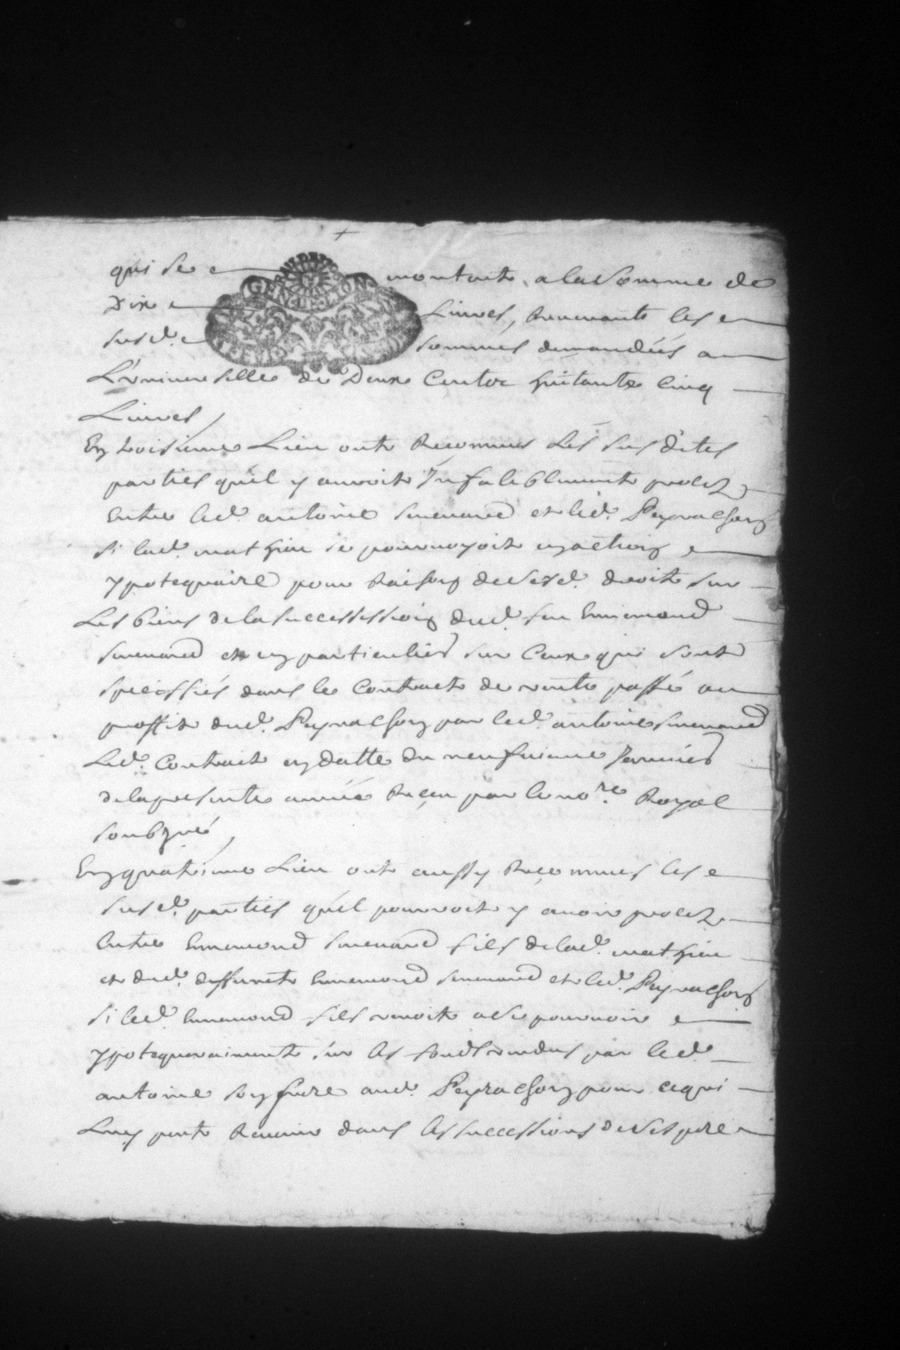 qui se montait a la somme de
Dix Livres, Revenants les
susd. sommes demandées a
L'universelle de Deux Centz huitante Cinq
Livres,
En troisieme Lieu ont Reconnus Les susdites
parties quil y auroit Infaliblement procez
Entre led. antoine Simeand et led. Peyrachon
si lad. mathieu se pourvoyoit en action
ypotequaire pour Raison de sesd. droits sur
Les biens de la successession dud. feu Ennemond
Simeand et en particulier sur Ceux qui sont
speciffiés dans le Contract de vente passé au
proffit dud. Peyrachon par led. antoine Simeand
Led. Contract en datte du neufvieme Janvier
de la presente année Reçeu par le no.re Royal
soubzné,
En quatrieme Lieu ont aussy Reçonnus les
susd. parties quil pourroit y avoir procez
Entre Ennemond Simeand fils de lad. mathieu
et dud. deffunct Ennemond Simeand et led. Peyrachon
si led. Ennemond fils venoit a se pourvoir
ypotequairement sur les fonds vendus par led.
antoine son frere aud. Peyrachon pour ce qui
Luy peut Revenir dans les successions de ses pere